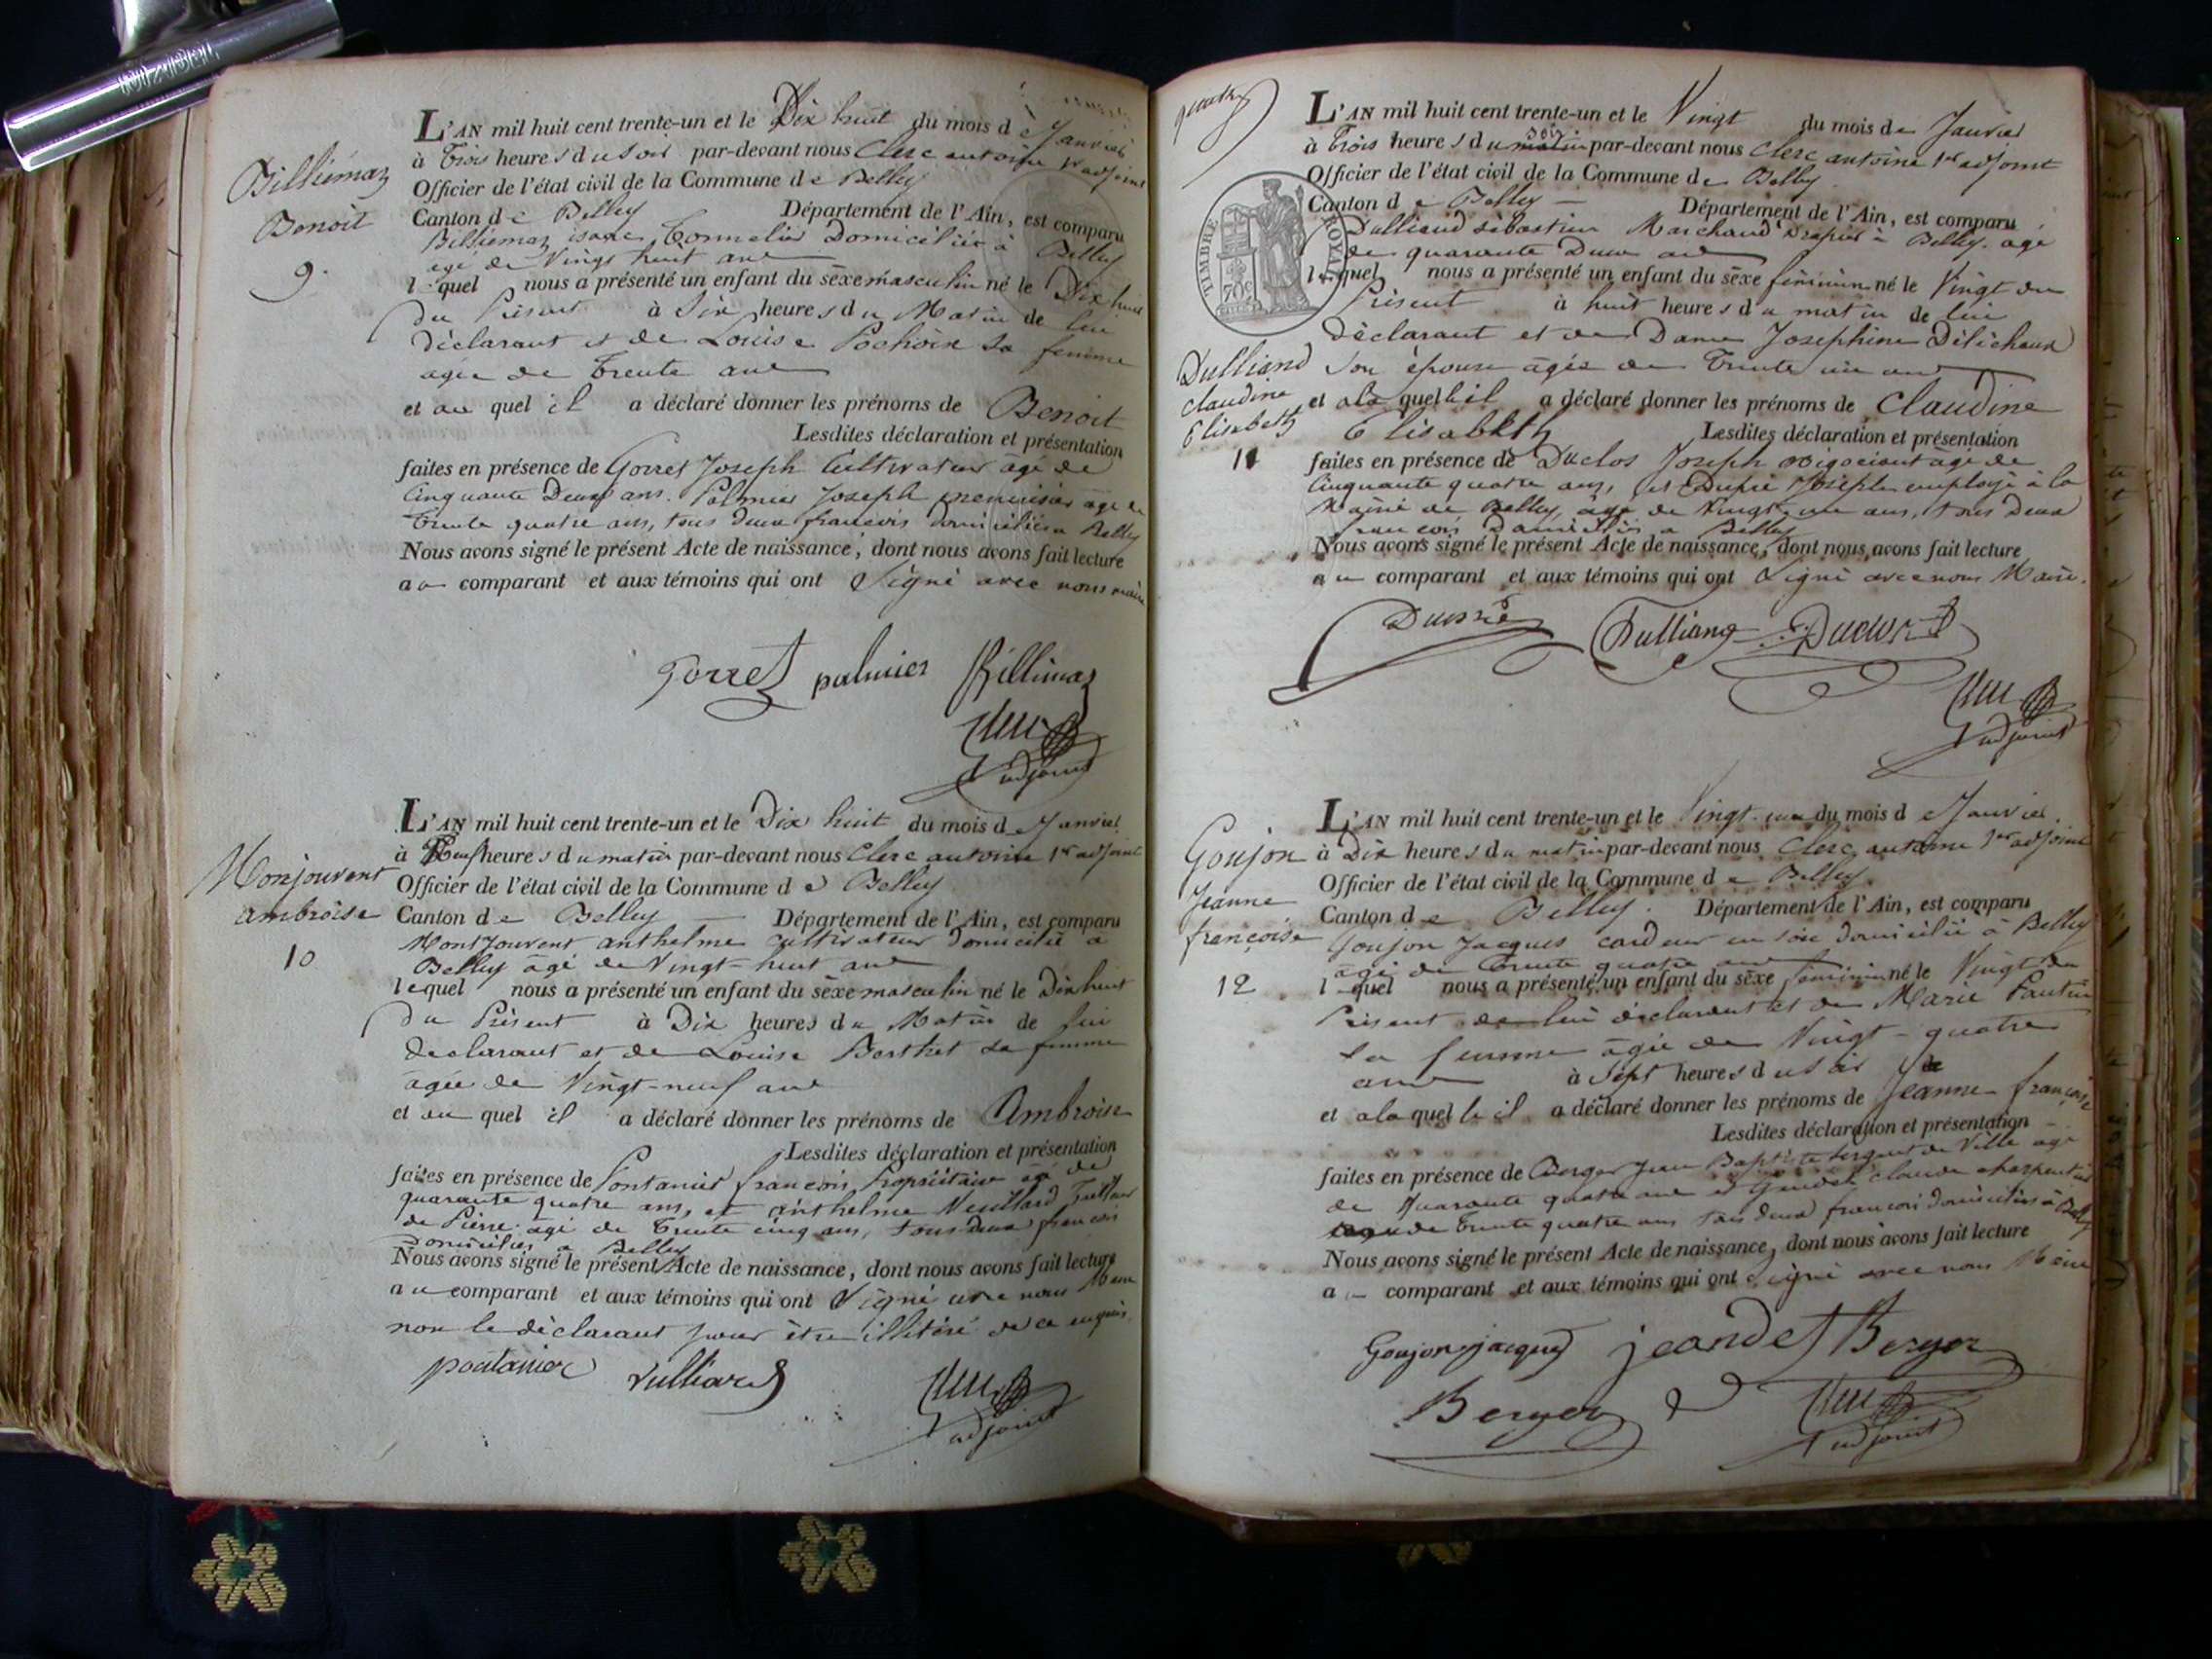 L'AN mil huit cent trente-un et le Dix huit du mois de Janvier
à Trois heures du soir par-devant nous Clerc antoine 1er adjoint
Officier de l'état civil de la Commune de Belley
Canton de Belley Département de l'Ain, est comparu
Billiémaz isaac Tonnelier Domicilié à Belley
agé de Vingt huit ans
lequel nous a présenté un enfant du sèxe masculin né le Dix huit
du Présent à Six heures du Matin de lui
déclarant et de Louise Pochoix Sa femme
agée de Trente ans
et au quel il a déclaré donner les prénoms de Benoit
Lesdites déclaration et présentation
faites en présence de Gorret Joseph Cultivateur âgé de
Cinquante Deux ans. Palmier Joseph menuisier âgé de
Trente quatre ans, tous deux francois domiciliés a Belley
Nous avons signé le présent Acte de naissance, dont nous avons fait lecture
au comparant et aux témoins qui ont Signé avec nous maire
Billiémaz
Benoit
9.
Gorret palmier Billiémaz
Clerc
adjoint
L'AN mil huit cent trente-un et le Dix huit du mois de Janvier
à Neuf heures du matin par-devant nous Clerc antoine 1er adjoint
Officier de l'état civil de la Commune de Belley
Canton de Belley Département de l'Ain, est comparu
MontJouvent anthelme cultivateur domicilié a
Belley âgé de Vingt-huit ans
lequel nous a présenté un enfant du sèxe masculin né le Dix huit
du Présent à Dix heures du Matin de lui
declarant et de Louise Berthet sa femme
âgée de Vingt-neuf ans
et au quel il a déclaré donner les prénoms de Ambroise
Lesdites déclaration et présentation
faites en présence de Pontanier francois Propriétaire agé de
quarante quatre ans, et anthelme Tailleur
de Pierre agé de Trente cinq ans, tous deux francois
Domiciliés a Belley
Nous avons signé le présent Acte de naissance, dont nous avons fait lecture
au comparant et aux témoins qui ont Signé avec nous Maire
non le déclarant pour être illitéré de ce enquis
Monjouvent
ambroise
10
pontanier Vulliard
Clerc
adjoint
L'AN mil huit cent trente-un et le Vingt du mois de Janvier
à Trois heures du matin soir par-devant nous Clerc antoine 1er adjoint
Officier de l'état civil de la Commune de Belley
Canton de Belley Département de l'Ain, est comparu
Dulliand sébastien Marchand Drapier à Belley. agé
de quarante Deux ans
lequel nous a présenté un enfant du sèxe féminin né le Vingt du
Présent à huit heures du matin de lui
Déclarant et de Dame Josephine Déléchaux
Son épouse âgée de Trente un ans
et a la quelle il a déclaré donner les prénoms de Claudine
Elisabeth Lesdites déclaration et présentation
faites en présence de Duclos Joseph Négociant âgé de
Cinquante quatre ans, et Dupré Joseph employé à la
Mairie de Belley, âgé de Vingt-un ans, tous Deux
francois Domiciliés a Belley
Nous avons signé le présent Acte de naissance, dont nous avons fait lecture
au comparant et aux témoins qui ont Signé avec nous Maire.
TIMBRE ROYAL
70c
Dulliand
claudine
Elisabeth
11
Dupré Dulliand Duclos
Clerc
adjoint
L'AN mil huit cent trente-un et le Vingt-un du mois de Janvier.
à Dix heures du matin par-devant nous Clerc antoine 1er adjoint
Officier de l'état civil de la Commune de Belley.
Canton de Belley. Département de l'Ain, est comparu
Goujon Jacques cardeur en soie domicilié à Belley
âgé de Trente quatre ans
lequel nous a présenté un enfant du sèxe féminin né le Vingt du
Présent de lui déclarant et de Marie Pantin
Sa femme âgée de Vingt-quatre
ans à Sept heures du soir
et a la quelle il a déclaré donner les prénoms de Jeanne françoise
Lesdites déclaration et présentation
faites en présence de Berger Jean Baptiste sergent de Ville âgé
de Quarante quatre ans et claude charpentier
de Trente quatre ans tous deux francois domiciliés à Belley
Nous avons signé le présent Acte de naissance, dont nous avons fait lecture
a comparant et aux témoins qui ont Signé avec nous Maire
Goujon
Jeanne
françoise
12
Goujon jacques jeandet Berger
Berger
Clerc
adjoint